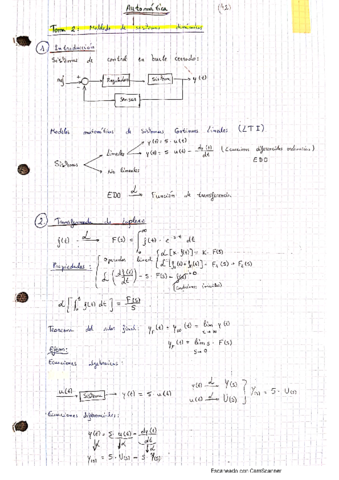 Automática
Tema 2: Modelado de sistemas dinámicos
① Introducción
Sistemas de control en bucle cerrado:
ref + Regulador Sistema y(t)
-
Sensor
Modelos matemáticos de Sistemas Continuos lineales (LTI)
Sistemas
Lineales
y(t) = 5·u(t)
y(t) = 5·u(t) - dy(t)/dt (Ecuaciones diferenciales ordinarias)
EDO
No lineales
EDO ℒ→ Función de transferencia
② Transformada de Laplace
f(t) ℒ→ F(s) = ∫₀^∞ f(t)·e^-st dt
Propiedades:
Operador lineal
ℒ[K·f(t)] = K·F(s)
ℒ[f₁(t)+f₂(t)] = F₁(s)+F₂(s)
ℒ(df(t)/dt) = s·F(s) - f(0)
ℒ[∫₀^t f(t) dt] = F(s)/s
Teorema del valor final:
y(t) = lim y(t)
t→∞
lim s·F(s)
s→0
Ecuaciones algebraicas:
u(t) Sistema → y(t) = 5·u(t)
y(t) ℒ→ Y(s)
u(t) ℒ→ U(s)
Y(s) = 5·U(s)
Ecuaciones diferenciales:
y(t) = 5·u(t) - dy(t)/dt
ℒ ℒ ℒ
Y(s) = 5·U(s) - s Y(s)
Escaneado con CamScanner